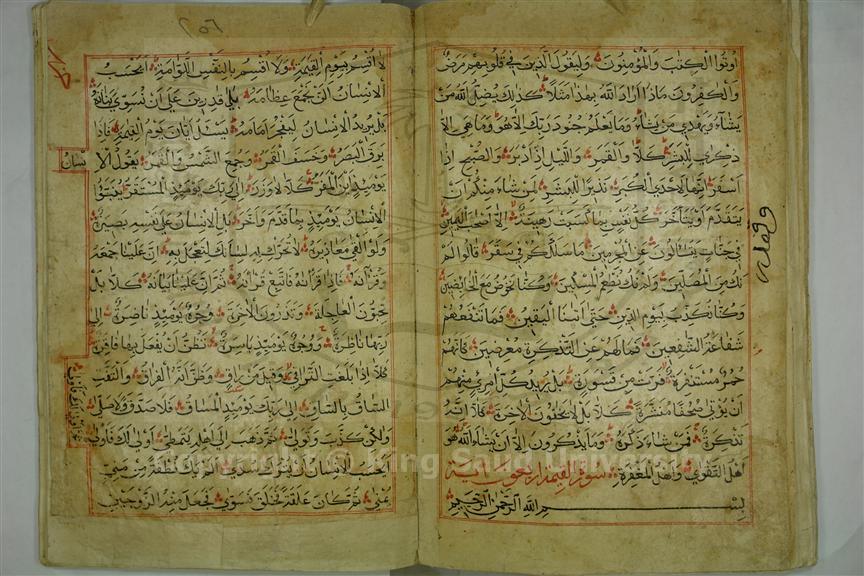 اوتوا الكتب والمؤمنون وليقول الذين في قلوبهم مرض
والكفرون ماذا اراد الله بهذا مثلا كذلك يضل الله من
يشاء ويهدي من يشاء وما يعلم جنود ربك الا هو وما هي الا
ذكري للبشر كلا والقمر والليل اذ ادبر والصبح اذا
اسفر انها لاحدي الكبر نذيرا للبشر لمن شاء منكم ان
يتقدم او يتاخر كل نفس بما كسبت رهينة الا اصحب اليمين
في جنات يتسائلون عن المجرمين ما سلككم في سقر قالوا لم
نك من المصلين ولم نك نطعم المسكين وكنا نخوض مع الخائضين
وكنا نكذب بيوم الدين حتي اتنا اليقين فما تنفعهم
شفاعة الشفعين فما لهم عن التذكرة معرضين كانهم
حمر مستنفرة فرت من قسورة بل يريد كل امرئ منهم
ان يؤتي صحفا منشرة كلا بل لا يخافون الاخرة كلا انه
تذكرة فمن شاء ذكره وما يذكرون الا ان يشاء الله هو
اهل التقوي واهل المغفرة سورة القيمة اربعون اية
بسم الله الرحمن الرحيم
وقف لله
٢٥٦
لا اقسم بيوم القيمة ولا اقسم بالنفس اللوامة ايحسب
الانسان الن نجمع عظامه بلي قدرين علي ان نسوي بنانه
بل يريد الانسان ليفجر امامه يسئل ايان يوم القيمة فاذا
برق البصر وخسف القمر وجمع الشمس والقمر يقول الا
نسان
يومئذ اين المفر كلا لا وزر الي ربك يومئذ المستقر ينبؤا
الانسان يومئذ بما قدم واخر بل الانسان علي نفسه بصيرة
ولو القي معاذيره لا تحرك به لسانك لتعجل به ان علينا جمعه
وقرانه فاذا قرانه فاتبع قرانه ثم ان علينا بيانه كلا بل
تحبون العاجلة وتذرون الاخرة وجوه يومئذ ناضرة الي
ربها ناظرة ووجوه يومئذ باسرة تظن ان يفعل بها فاقرة
كلا اذا بلغت التراقي وقيل من راق وظن انه الفراق والتفت
الساق بالساق الي ربك يومئذ المساق فلا صدق ولا صلي
ولكن كذب وتولي ثم ذهب الي اهله يتمطي اولي لك فاولي
ايحسب الانسان ان يترك سدي الم يك نطفة من مني
يمني ثم كان علقة فخلق فسوي فجعل منه الزوجين
Copyright © King Saud University